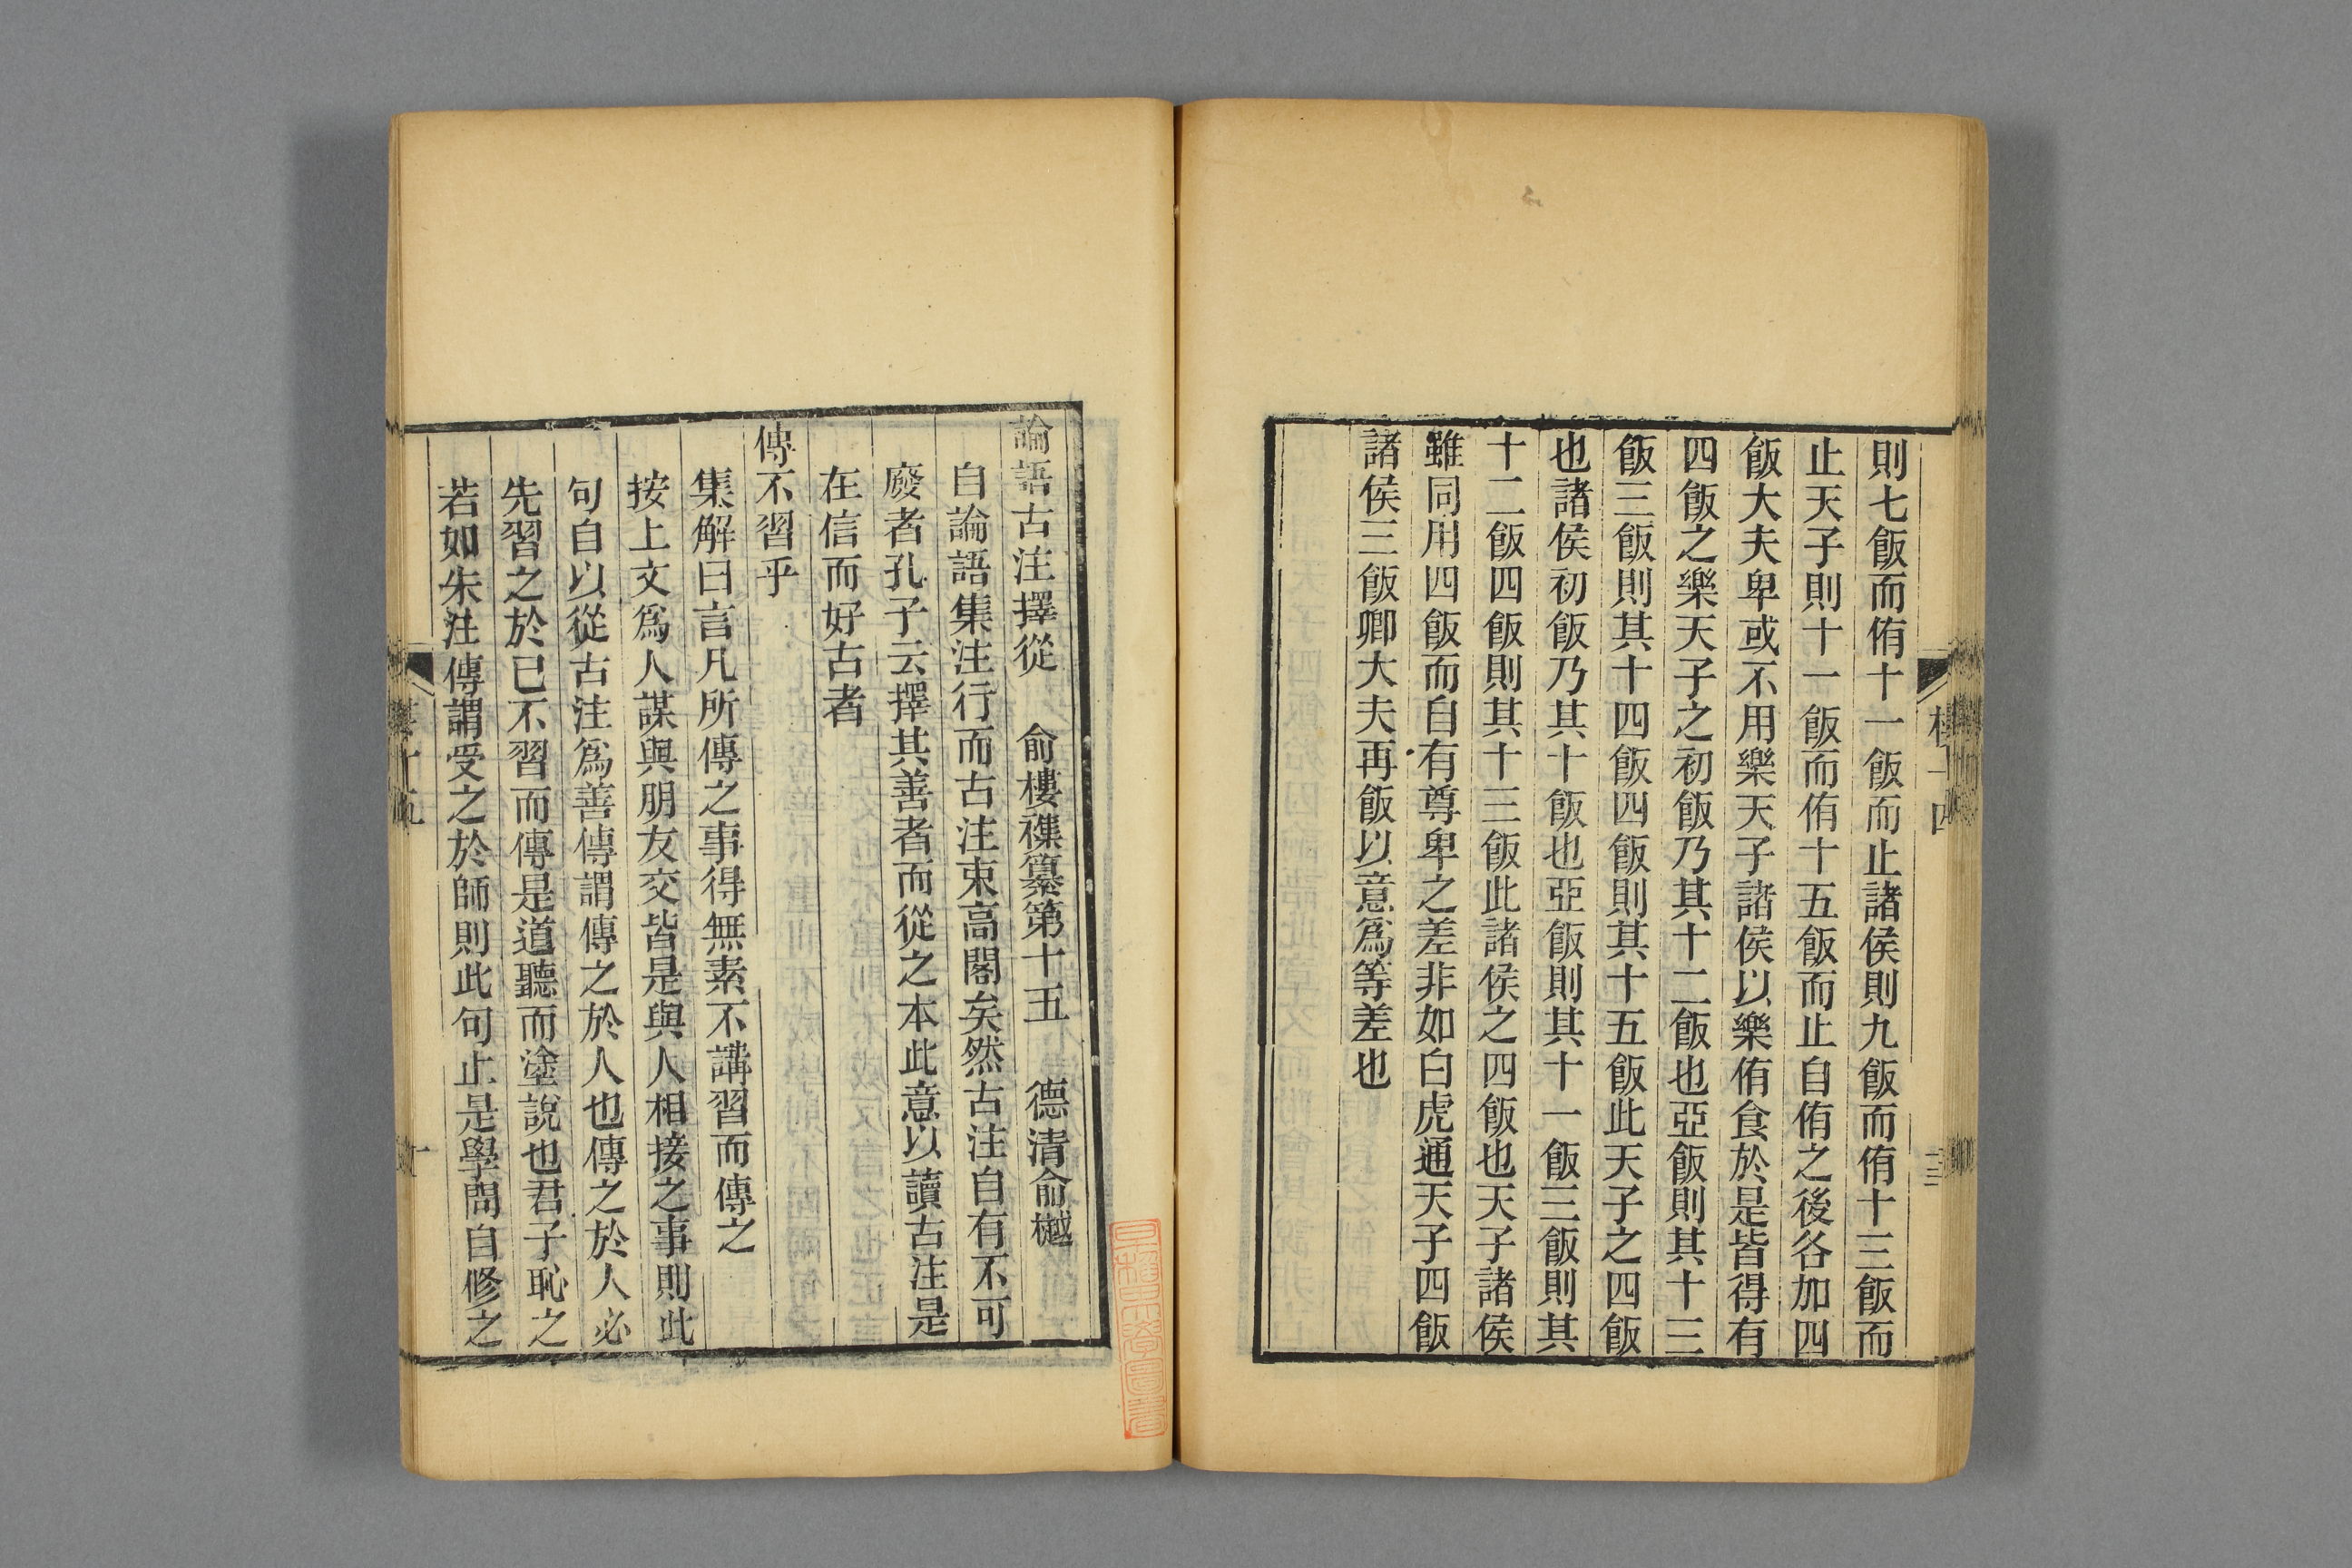 則七飯而侑十一飯而止諸侯則九飯而侑十三飯而
止天子則十一飯而侑十五飯而止自侑之後各加四
飯大夫卑或不用樂天子諸侯以樂侑食於是皆得有
四飯之樂天子之初飯乃其十二飯也亞飯則其十三
飯三飯則其十四飯四飯則其十五飯此天子之四飯
也諸侯初飯乃其十飯也亞飯則其十一飯三飯則其
十二飯四飯則其十三飯此諸侯之四飯也天子諸侯
雖同用四飯而自有尊卑之差非如白虎通天子四飯
諸侯三飯卿大夫再飯以意爲等差也
論語古注擇從 俞樓襍纂第十五 德清俞樾
自論語集注行而古注束高閣矣然古注自有不可
廢者孔子云擇其善者而從之本此意以讀古注是
在信而好古者
傳不習乎
集解曰言凡所傳之事得無素不講習而傳之
按上文爲人謀與朋友交皆是與人相接之事則此
句自以從古注爲善傳謂傳之於人也傳之於人必
先習之於已不習而傳是道聽而塗說也君子恥之
若如朱注傳謂受之於師則此句止是學問自修之